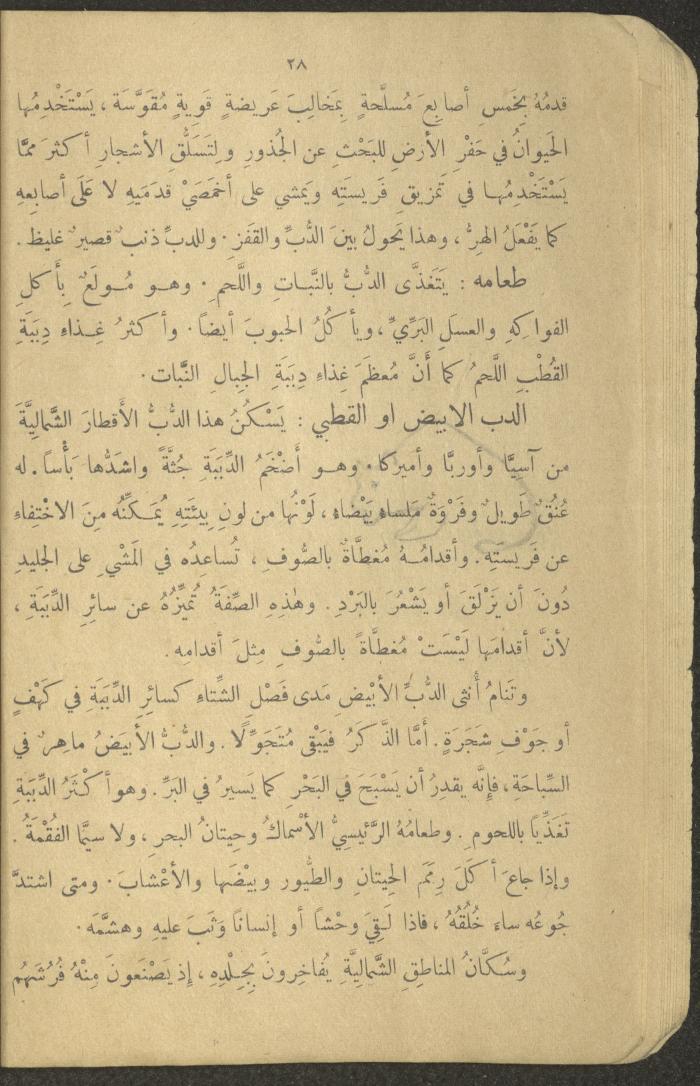 ٢٨
قدمُهُ بِخَمسِ أصابِعَ مُسلَّحةٍ بِمَخالِبَ عَريضةٍ قَويةٍ مُقَوَّسَة ، يَسْتَخْدِمُها
الحَيوانُ في حَفْرِ الأرضِ للبَحْثِ عن الجُذورِ ولِتَسَلُّقِ الأشجار أكثرَ ممَّا
يَسْتَخْدِمُهـا في تَمزيقِ فَريسَتِه ويَمشي على أخمَصَيْ قدَمَيهِ لا عَلَى أصابِعِهِ
كما يَفْعَلُ الهِرُّ ، وهذا يَحولُ بينَ الدُّبِّ والقَفزِ . وللدبِّ ذنبٌ قصيرٌ غليظ .
طعامه : يَتَغذَّى الدُّبُّ بالنَّبـاتِ واللَّحمِ . وهـو مُـولَعٌ بِأَكلِ
الفواكِهِ والعسَلِ البَرِّيِّ ، ويأكُلُ الحبوبَ أيضاً . وأكثرُ غِـذاءِ دِبَبَةِ
القُطْبِ اللَّحمُ كما أَنَّ مُعظَمَ غذاءِ دِبَبَةِ الجِبالِ النَّبات .
الدب الابيض او القطبي : يَسْكُنُ هذا الدُّبُّ الأَقطارَ الشَّمالِيَّةَ
من آسِيَّا وأوربَّا وأميركا . وهـو أَضْخَمُ الدِّبَبَةِ جُثَّةً واشدُّها بَأْساً . له
عُنُقٌ طَويلٌ وفَرْوَةٌ مَلساء بَيْضاء ، لَوْنُها من لونِ بِيئَتِهِ يُمَـكِّنُه مِنَ الاخْتِفاءِ
عن فَريسَتِه . وأقدامُـهُ مُغطَّاةٌ بالصُّوفِ ، تُساعِدُه في المَشْيِ على الجليدِ
دُونَ أن يَزْلَقَ أو يَشْعُرَ بالبَرْدِ . وهٰذِهِ الصِّفَةُ تُمَيِّزُهُ عن سائرِ الدِّبَبَةِ ،
لأنَّ أقدامَها لَيْسَتْ مُغطَّاةً بالصُّوفِ مِثلَ أقدامِه .
وتَنامُ أُنثى الدُّبِّ الأبْيضِ مَدى فَصْلِ الشِّتاءِ كسائِرِ الدِّبَبَةِ في كَهْفٍ
أو جَوْفِ شَجَرَةٍ . أمَّا الذَّكَرُ فيَبْقى مُتَجَوِّلًا . والدُّبُّ الأبيَضُ ماهِرٌ في
السِّباحَة ، فإِنَّه يقدِرُ أن يَسْبَحَ في البَحْرِ كما يَسيرُ في البَرِّ . وهو أكْثَرُ الدِّبَبَةِ
تَغَذِّياً باللحومِ . وطعامُهُ الرَّئيسِيُّ الأسْماكُ وحِيتانُ البحرِ ، ولا سيَّما الفُقْمَةُ .
وإذا جاعَ أكَلَ رِمَمَ الحِيتانِ والطُّيور وبيْضَها والأعْشابَ . ومتى اشتدَّ
جُوعُه ساءَ خُلُقُهُ ، فاذا لَقِيَ وحْشاً أو إنساناً وَثَبَ عليهِ وهشَّمَه .
وسُكَّانُ المناطِقِ الشَّمالِيَّةِ يُفاخِرونَ بِجِـلْدِهِ ، إذ يَصْنَعونَ مِنْهُ فُرُشَهُم